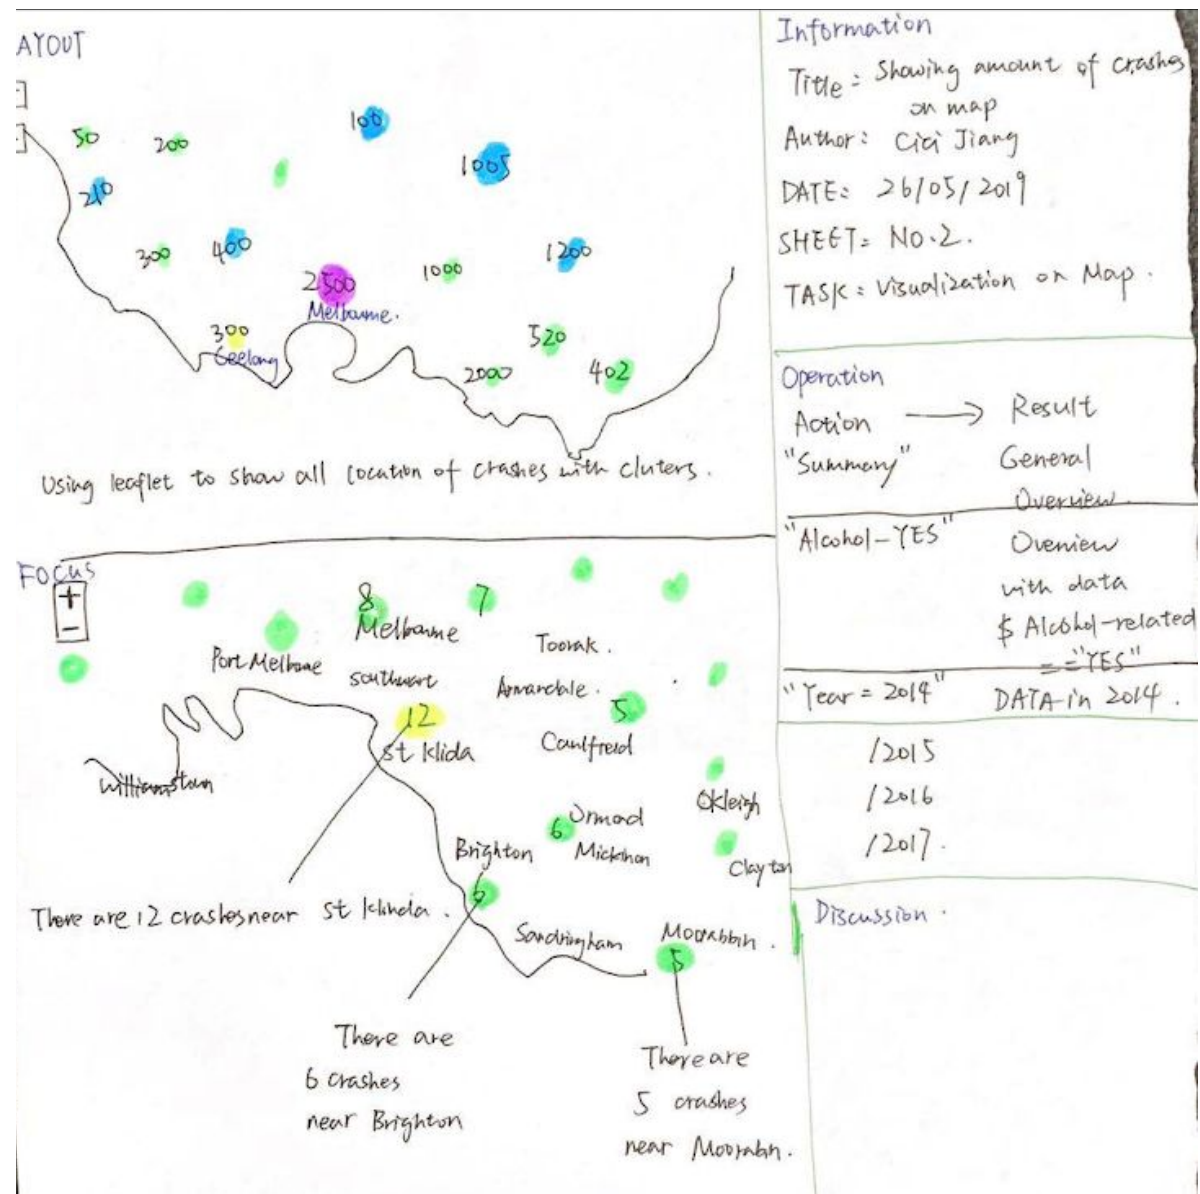 AYOUT
50
200
100
1005
210
300
400
2500
Melbourne.
1000
1200
300
Geelong
520
2000
402
Using leaflet to show all location of crashes with cluters.
FOCUS
+
-
8
7
Melbourne
Port Melbune
southwart
Toorak.
Armandale.
12
5
st klida
Caulfreid
Williamstown
Okleigh
6
Ormond
Mickinon
Brighton
Clayton
6
Sandringham
Moorabbin.
5
There are 12 crashes near st klinda.
There are
6 crashes
near Brighton
There are
5 crashes
near Moorabn.
Information
Title: Showing amount of crashes
on map
Author: Cici Jiang
DATE: 26/05/2019
SHEET: NO.2.
TASK: Visualization on Map.
Operation
Action → Result
"Summary" General
Overview.
"Alcohol-YES" Overview
with data
$ Alcohol-related
=="YES"
"Year = 2014" DATA in 2014.
/2015
/2016
/2017.
Discussion.